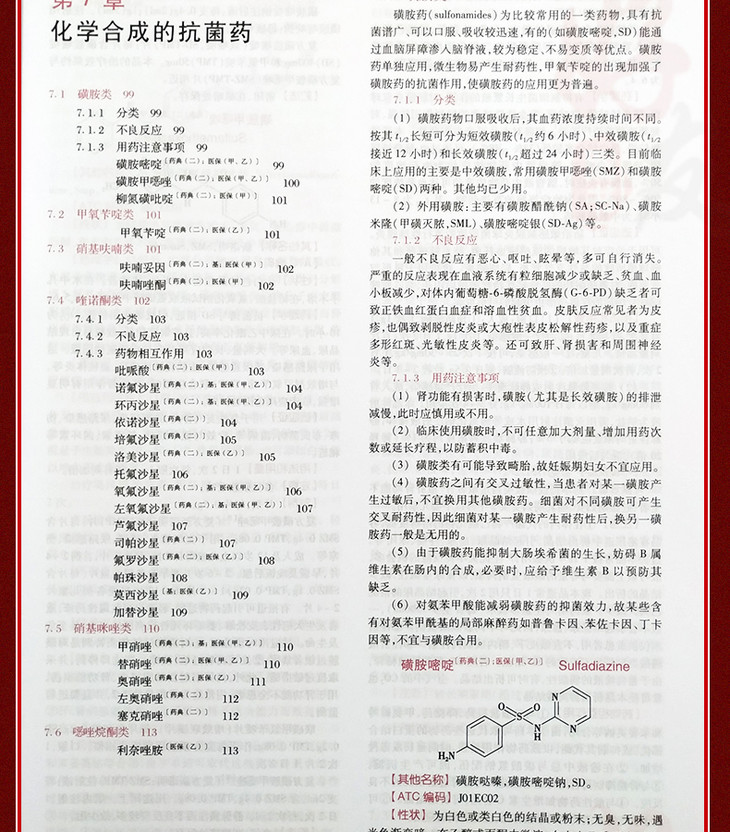 第7章
化学合成的抗菌药
7.1 磺胺类 99
7.1.1 分类 99
7.1.2 不良反应 99
7.1.3 用药注意事项 99
磺胺嘧啶[药典(二);医保(甲、乙)] 99
磺胺甲噁唑[药典(二);医保(甲、乙)] 100
柳氮磺吡啶[药典(二);医保(甲)] 101
7.2 甲氧苄啶类 101
甲氧苄啶[药典(二);医保(乙)] 101
7.3 硝基呋喃类 101
呋喃妥因[药典(二);基;医保(甲)] 102
呋喃唑酮[药典(二);医保(甲)] 102
7.4 喹诺酮类 102
7.4.1 分类 103
7.4.2 不良反应 103
7.4.3 药物相互作用 103
吡哌酸[药典(二);医保(甲)] 103
诺氟沙星[药典(二);基;医保(甲、乙)] 104
环丙沙星[药典(二);基;医保(甲、乙)] 104
依诺沙星[药典(二)] 104
培氟沙星[药典(二)] 105
洛美沙星[药典(二);医保(乙)] 105
托氟沙星 106
氧氟沙星[药典(二);基;医保(甲、乙)] 106
左氧氟沙星[药典(二);基;医保(甲、乙)] 107
芦氟沙星 107
司帕沙星[药典(二)] 107
氟罗沙星[药典(二);医保(乙)] 108
帕珠沙星 108
莫西沙星[基;医保(乙)] 109
加替沙星 109
7.5 硝基咪唑类 110
甲硝唑[药典(二);基;医保(甲、乙)] 110
替硝唑[药典(二);基;医保(甲、乙)] 110
奥硝唑[药典(二);医保(乙)] 111
左奥硝唑[药典(二)] 112
塞克硝唑[药典(二)] 112
7.6 噁唑烷酮类 113
利奈唑胺[医保(乙)] 113
磺胺药(sulfonamides)为比较常用的一类药物,具有抗
菌谱广、可以口服、吸收较迅速,有的(如磺胺嘧啶,SD)能通
过血脑屏障渗入脑脊液,较为稳定、不易变质等优点。磺胺
药单独应用,微生物易产生耐药性,甲氧苄啶的出现加强了
磺胺药的抗菌作用,使磺胺药的应用更为普遍。
7.1.1 分类
(1) 磺胺药物口服吸收后,其血药浓度持续时间不同。
按其t1/2长短可分为短效磺胺(t1/2约6小时)、中效磺胺(t1/2
接近12小时)和长效磺胺(t1/2超过24小时)三类。目前临
床上应用的主要是中效磺胺,常用磺胺甲噁唑(SMZ)和磺胺
嘧啶(SD)两种。其他均已少用。
(2) 外用磺胺:主要有磺胺醋酰钠(SA;SC-Na)、磺胺
米隆(甲磺灭脓,SML)、磺胺嘧啶银(SD-Ag)等。
7.1.2 不良反应
一般不良反应有恶心、呕吐、眩晕等,多可自行消失。
严重的反应表现在血液系统有粒细胞减少或缺乏、贫血、血
小板减少,对体内葡萄糖-6-磷酸脱氢酶(G-6-PD)缺乏者可
致正铁血红蛋白血症和溶血性贫血。皮肤反应常见者为皮
疹,也偶致剥脱性皮炎或大疱性表皮松解性药疹,以及重症
多形红斑、光敏性皮炎等。还可致肝、肾损害和周围神经
炎等。
7.1.3 用药注意事项
(1) 肾功能有损害时,磺胺(尤其是长效磺胺)的排泄
减慢,此时应慎用或不用。
(2) 临床使用磺胺时,不可任意加大剂量、增加用药次
数或延长疗程,以防蓄积中毒。
(3) 磺胺类有可能导致畸胎,故妊娠期妇女不宜应用。
(4) 磺胺药之间有交叉过敏性,当患者对某一磺胺产
生过敏后,不宜换用其他磺胺药。细菌对不同磺胺可产生
交叉耐药性,因此细菌对某一磺胺产生耐药性后,换另一磺
胺药一般是无用的。
(5) 由于磺胺药能抑制大肠埃希菌的生长,妨碍B属
维生素在肠内的合成,必要时,应给予维生素B以预防其
缺乏。
(6) 对氨苯甲酸能减弱磺胺药的抑菌效力,故某些含
有对氨苯甲酰基的局部麻醉药如普鲁卡因、苯佐卡因、丁卡
因等,不宜与磺胺合用。
磺胺嘧啶[药典(二);医保(甲、乙)] Sulfadiazine
O O
S
N
H
N
N
H2N
【其他名称】 磺胺哒嗪,磺胺嘧啶钠,SD。
【ATC编码】 J01EC02
【性状】 为白色或类白色的结晶或粉末;无臭,无味,遇